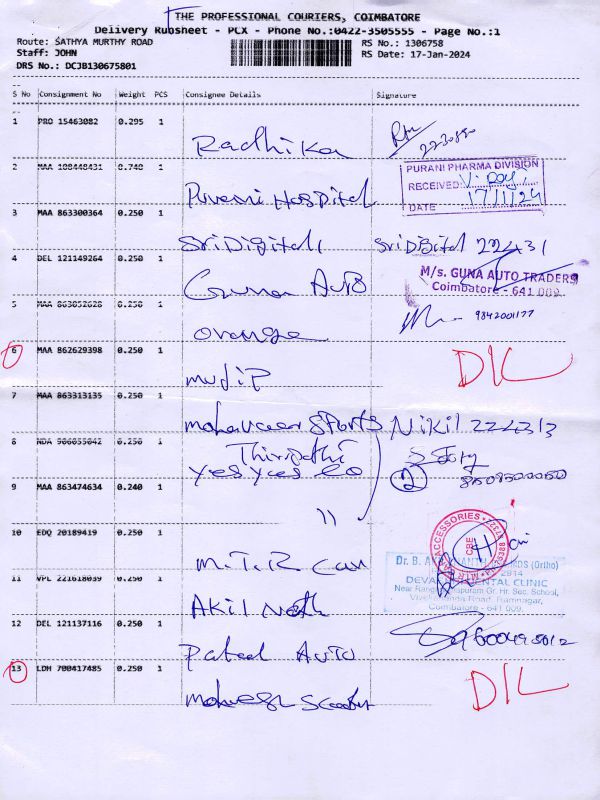 THE PROFESSIONAL COURIERS, COIMBATORE
Delivery Runsheet - PCX - Phone No.:0422-3505555 - Page No.:1
Route: SATHYA MURTHY ROAD RS No.: 1306758
Staff: JOHN RS Date: 17-Jan-2024
DRS No.: DCJB130675801
S No Consignment No Weight PCS Consignee Details Signature
1 PRO 15463082 0.295 1
Radhika
2 MAA 108448431 0.740 1
PURANI PHARMA DIVISION
RECEIVED:
DATE 17/1/24
Purani Hospital
3 MAA 863300364 0.250 1
Sri Digital, Sri Digital 22431
4 DEL 121149264 0.250 1
M/s. GUNA AUTO TRADERS
Coimbatore - 641 009.
Guna Auto
5 MAA 863052628 0.250 1
9842001177
orange
6 MAA 862629398 0.250 1
DIL
mudip
7 MAA 863313135 0.250 1
mahaveer sports Nikil 224313
8 NDA 906055042 0.250 1
Thirupathi
yes yes co 2
9 MAA 863474634 0.240 1
"
10 EDQ 20189419 0.250 1
ACCESSORIES
CBE
M.T.R Car
Dr. B. MDS (Ortho)
DENTAL CLINIC
Gr. Hr. Sec. School,
Road, Ramnagar,
Coimbatore - 641 009.
11 VPL 221618039 0.250 1
Akil Nath
12 DEL 121137116 0.250 1
Patel Auto
13 LDH 700417485 0.250 1
DIL
Mahesh Scooter